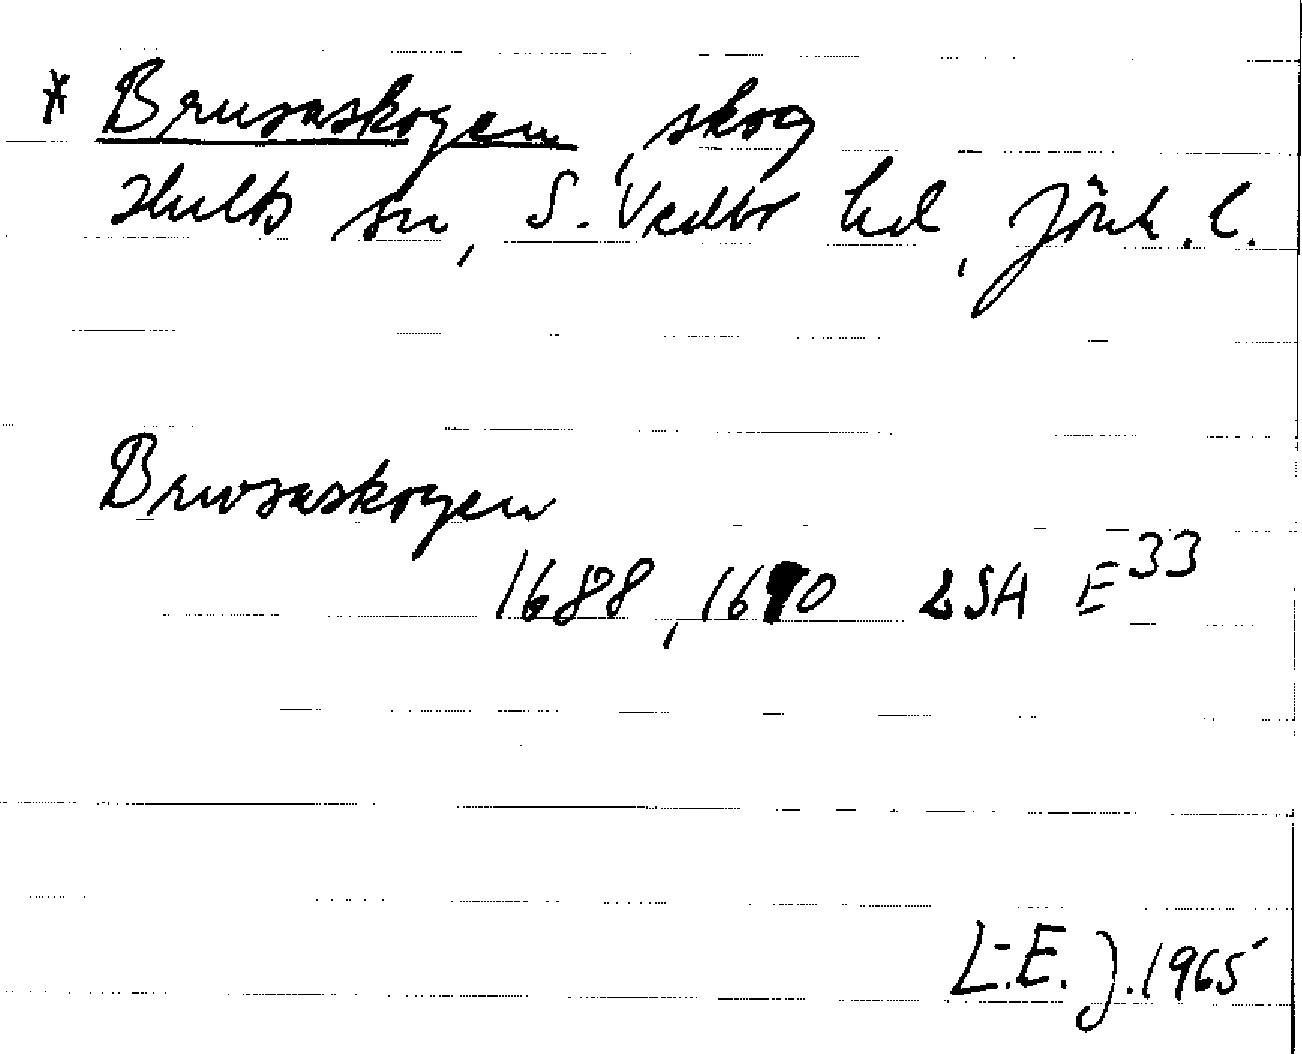 * Brusaskogen, skog
Hults sn, S. Vedbo hd, Jönk. l.
Brwsaskogen
1688, 1690 LSA E33
L-E. J. 1965